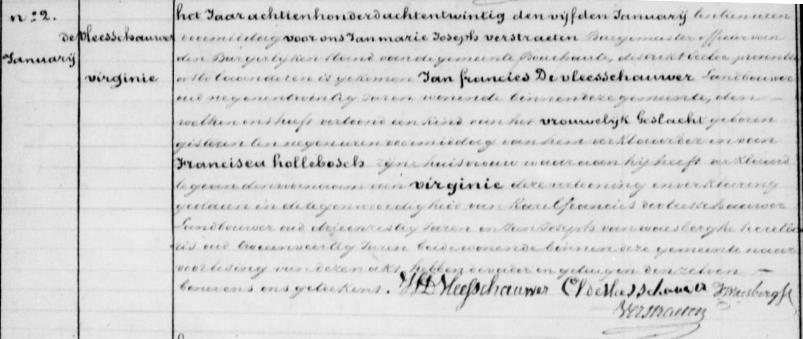 n.o 2.
de vleesschauwer
Januarij
virginie
het Jaar achtienhonderd achtentwintig den vijfden Januarij ten tien uren
voormiddag voor ons Jan marie Joseph verstraeten Burgemeester officier van
den Burgerlyken stand van de gemeente Bouchaute, distrikt Eecloo provintie
oostvlaanderen is gekomen Jan francies De vleesschauwer Landbouwer
oud negenentwintig Jaren wonende binnen deze gemeente, den
welken ons heeft vertoond een kind van het vrouwelijk geslacht geboren
gisteren ten negen uren voormiddag van hem verklaarder en van
Francisca hollebosch zyne huisvrouw waar aan hij heeft verklaard
te gaan den voornaam van virginie deze vertooning en verklaring
gedaan in de tegenwoordigheid van Karel francies de vleesschauwer
Landbouwer oud drieenzestig Jaren en Jan Joseph van waesberghe
oud tweenveertig Jaren beide wonende binnen deze gemeente naer
voorlesing van dezen akt hebben de vader en getuigen den zelven
benevens ons geteekent. JF D Vleesschauwer CF de Vleesschauwer
Verstraeten